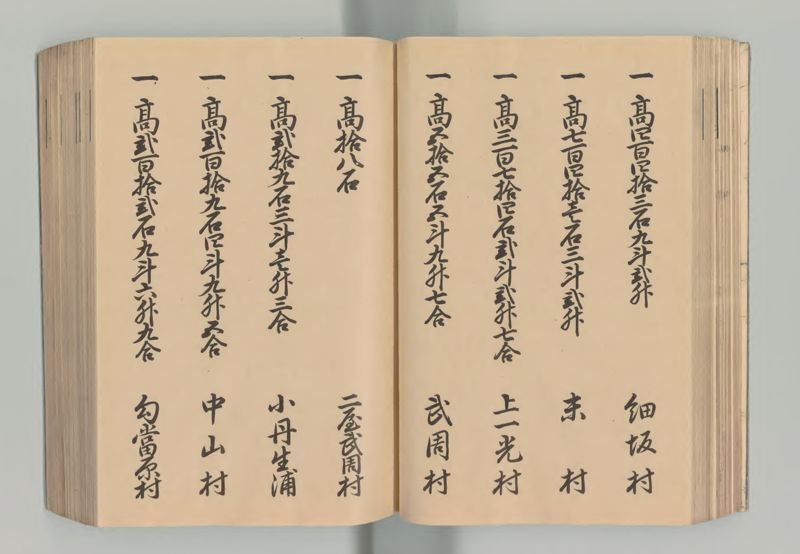 一 高四百四拾三石九斗弐升 細坂村
一 高七百四拾壱石三斗弐升 末村
一 高三百七拾四石弐斗弐升七合 上一光村
一 高五拾五石五斗九升七合 武周村
一 高拾八石 二屋武周村
一 高弐拾九石三斗壱升三合 小丹生浦
一 高弐百拾九石四斗九升五合 中山村
一 高弐百拾弐石九斗六升九合 勾當原村